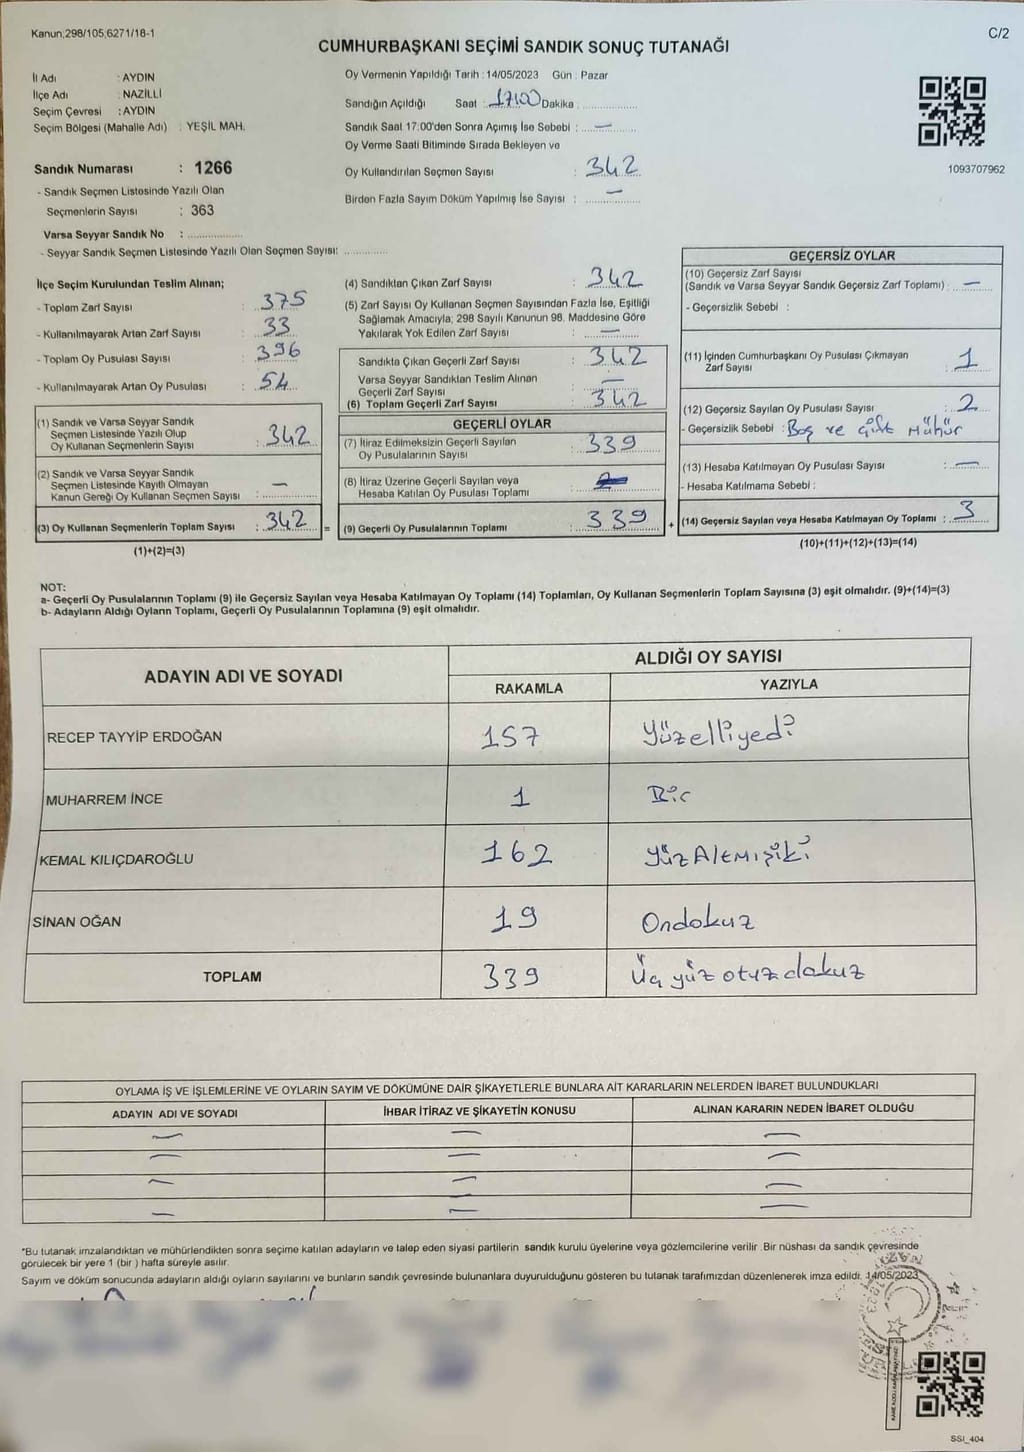 Kanun,298/105,6271/18-1
C/2
CUMHURBAŞKANI SEÇİMİ SANDIK SONUÇ TUTANAĞI
İl Adı : AYDIN
İlçe Adı : NAZİLLİ
Seçim Çevresi : AYDIN
Seçim Bölgesi (Mahalle Adı) : YEŞİL MAH.
Oy Vermenin Yapıldığı Tarih : 14/05/2023 Gün : Pazar
Sandığın Açıldığı Saat : 17:00 Dakika :
Sandık Saat 17:00'den Sonra Açımış İse Sebebi : —
Oy Verme Saati Bitiminde Sırada Bekleyen ve
Oy Kullandırılan Seçmen Sayısı : 342
Birden Fazla Sayım Döküm Yapılmış İse Sayısı : —
1093707962
Sandık Numarası : 1266
- Sandık Seçmen Listesinde Yazılı Olan
Seçmenlerin Sayısı : 363
Varsa Seyyar Sandık No :
- Seyyar Sandık Seçmen Listesinde Yazılı Olan Seçmen Sayısı:
İlçe Seçim Kurulundan Teslim Alınan;
- Toplam Zarf Sayısı : 375
- Kullanılmayarak Artan Zarf Sayısı : 33
- Toplam Oy Pusulası Sayısı : 396
- Kullanılmayarak Artan Oy Pusulası : 54
(1) Sandık ve Varsa Seyyar Sandık
Seçmen Listesinde Yazılı Olup
Oy Kullanan Seçmenlerin Sayısı : 342
(2) Sandık ve Varsa Seyyar Sandık
Seçmen Listesinde Kayıtlı Olmayan
Kanun Gereği Oy Kullanan Seçmen Sayısı : —
(3) Oy Kullanan Seçmenlerin Toplam Sayısı : 342 =
(1)+(2)=(3)
(4) Sandıktan Çıkan Zarf Sayısı : 342
(5) Zarf Sayısı Oy Kullanan Seçmen Sayısından Fazla İse, Eşitliği
Sağlamak Amacıyla, 298 Sayılı Kanunun 98. Maddesine Göre
Yakılarak Yok Edilen Zarf Sayısı : —
Sandıkta Çıkan Geçerli Zarf Sayısı : 342
Varsa Seyyar Sandıktan Teslim Alınan
Geçerli Zarf Sayısı : —
(6) Toplam Geçerli Zarf Sayısı : 342
GEÇERLİ OYLAR
(7) İtiraz Edilmeksizin Geçerli Sayılan
Oy Pusulalarının Sayısı : 339
(8) İtiraz Üzerine Geçerli Sayılan veya
Hesaba Katılan Oy Pusulası Toplamı :
(9) Geçerli Oy Pusulalarının Toplamı : 339 +
GEÇERSİZ OYLAR
(10) Geçersiz Zarf Sayısı
(Sandık ve Varsa Seyyar Sandık Geçersiz Zarf Toplamı) : —
- Geçersizlik Sebebi :
(11) İçinden Cumhurbaşkanı Oy Pusulası Çıkmayan
Zarf Sayısı : 1
(12) Geçersiz Sayılan Oy Pusulası Sayısı : 2
- Geçersizlik Sebebi : Boş ve çift mühür
(13) Hesaba Katılmayan Oy Pusulası Sayısı : —
- Hesaba Katılmama Sebebi :
(14) Geçersiz Sayılan veya Hesaba Katılmayan Oy Toplamı : 3
(10)+(11)+(12)+(13)=(14)
NOT:
a- Geçerli Oy Pusulalarının Toplamı (9) ile Geçersiz Sayılan veya Hesaba Katılmayan Oy Toplamı (14) Toplamları, Oy Kullanan Seçmenlerin Toplam Sayısına (3) eşit olmalıdır. (9)+(14)=(3)
b- Adayların Aldığı Oyların Toplamı, Geçerli Oy Pusulalarının Toplamına (9) eşit olmalıdır.
ADAYIN ADI VE SOYADI
ALDIĞI OY SAYISI
RAKAMLA YAZIYLA
RECEP TAYYİP ERDOĞAN 157 Yüzelliyedi
MUHARREM İNCE 1 Bir
KEMAL KILIÇDAROĞLU 162 YüzAltmışiki
SİNAN OĞAN 19 Ondokuz
TOPLAM 339 Üç yüz otuz dokuz
OYLAMA İŞ VE İŞLEMLERİNE VE OYLARIN SAYIM VE DÖKÜMÜNE DAİR ŞİKAYETLERLE BUNLARA AİT KARARLARIN NELERDEN İBARET BULUNDUKLARI
ADAYIN ADI VE SOYADI İHBAR İTİRAZ VE ŞİKAYETİN KONUSU ALINAN KARARIN NEDEN İBARET OLDUĞU
— — —
— — —
— — —
— — —
*Bu tutanak imzalandıktan ve mühürlendikten sonra seçime katılan adayların ve talep eden siyasi partilerin sandık kurulu üyelerine veya gözlemcilerine verilir .Bir nüshası da sandık çevresinde
görülecek bir yere 1 (bir ) hafta süreyle asılır.
Sayım ve döküm sonucunda adayların aldığı oyların sayılarını ve bunların sandık çevresinde bulunanlara duyurulduğunu gösteren bu tutanak tarafımızdan düzenlenerek imza edildi. 14/05/2023
SSI_404